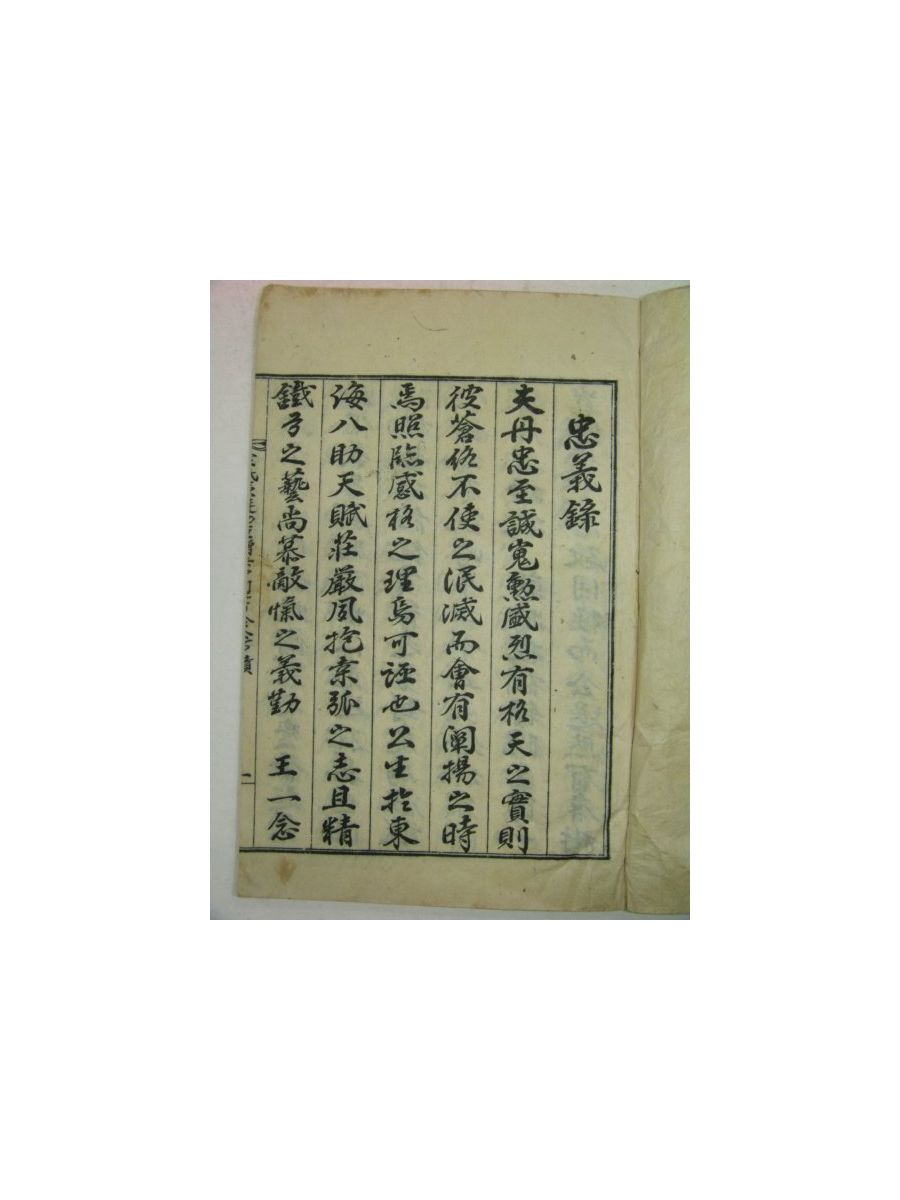 忠義錄
夫丹忠至誠嵬勲盛烈有格天之實則
彼蒼終不使之泯滅而會有闡揚之時
焉照臨感格之理烏可誣也公生於東
海八助天賦莊嚴夙抱桒弧之志且精
鐵弓之藝尚慕敵愾之義勤 王一念